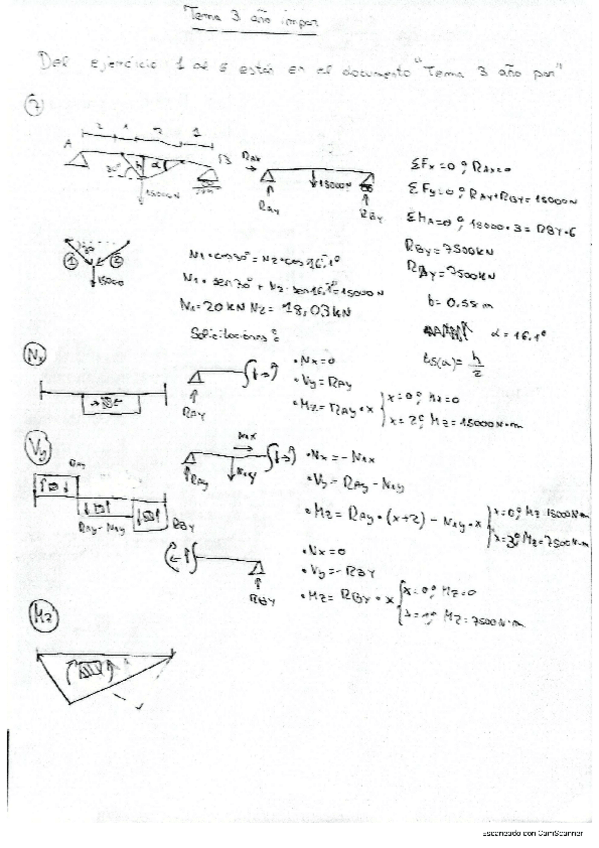 Tema 3 año impar
Del ejercicio 1 al 6 están en el documento "Tema 3 año par"
7
2 1 2 1
A B
30° h α
15000N
RAX
RAY
15000N
RBY
ΣFx=0; RAX=0
ΣFy=0; RAY+RBY=15000N
ΣMA=0; 15000·3=RBY·6
RBY=7500kN
RAY=7500kN
h=0.58m
α=16.1°
tg(α)=h/2
30°
1 2
15000
N1·cos30°=N2·cos16.1°
N1·sen30°+N2·sen16.1°=15000N
N1=20kN N2=18,03kN
Solicitaciones:
Nx
RAY
·Nx=0
·Vy=RAY
·Mz=RAY·x
x=0; Mz=0
x=2; Mz=15000N·m
Vy
RAY
RAY-N1Y
RBY
N1X
RAY
N1Y
·Nx=-N1X
·Vy=RAY-N1Y
·Mz=RAY·(x+2)-N1Y·x
x=0; Mz=15000N·m
x=3; Mz=7500N·m
RBY
·Nx=0
·Vy=-RBY
·Mz=RBY·x
x=0; Mz=0
x=1; Mz=7500N·m
Mz
Escaneado con CamScanner